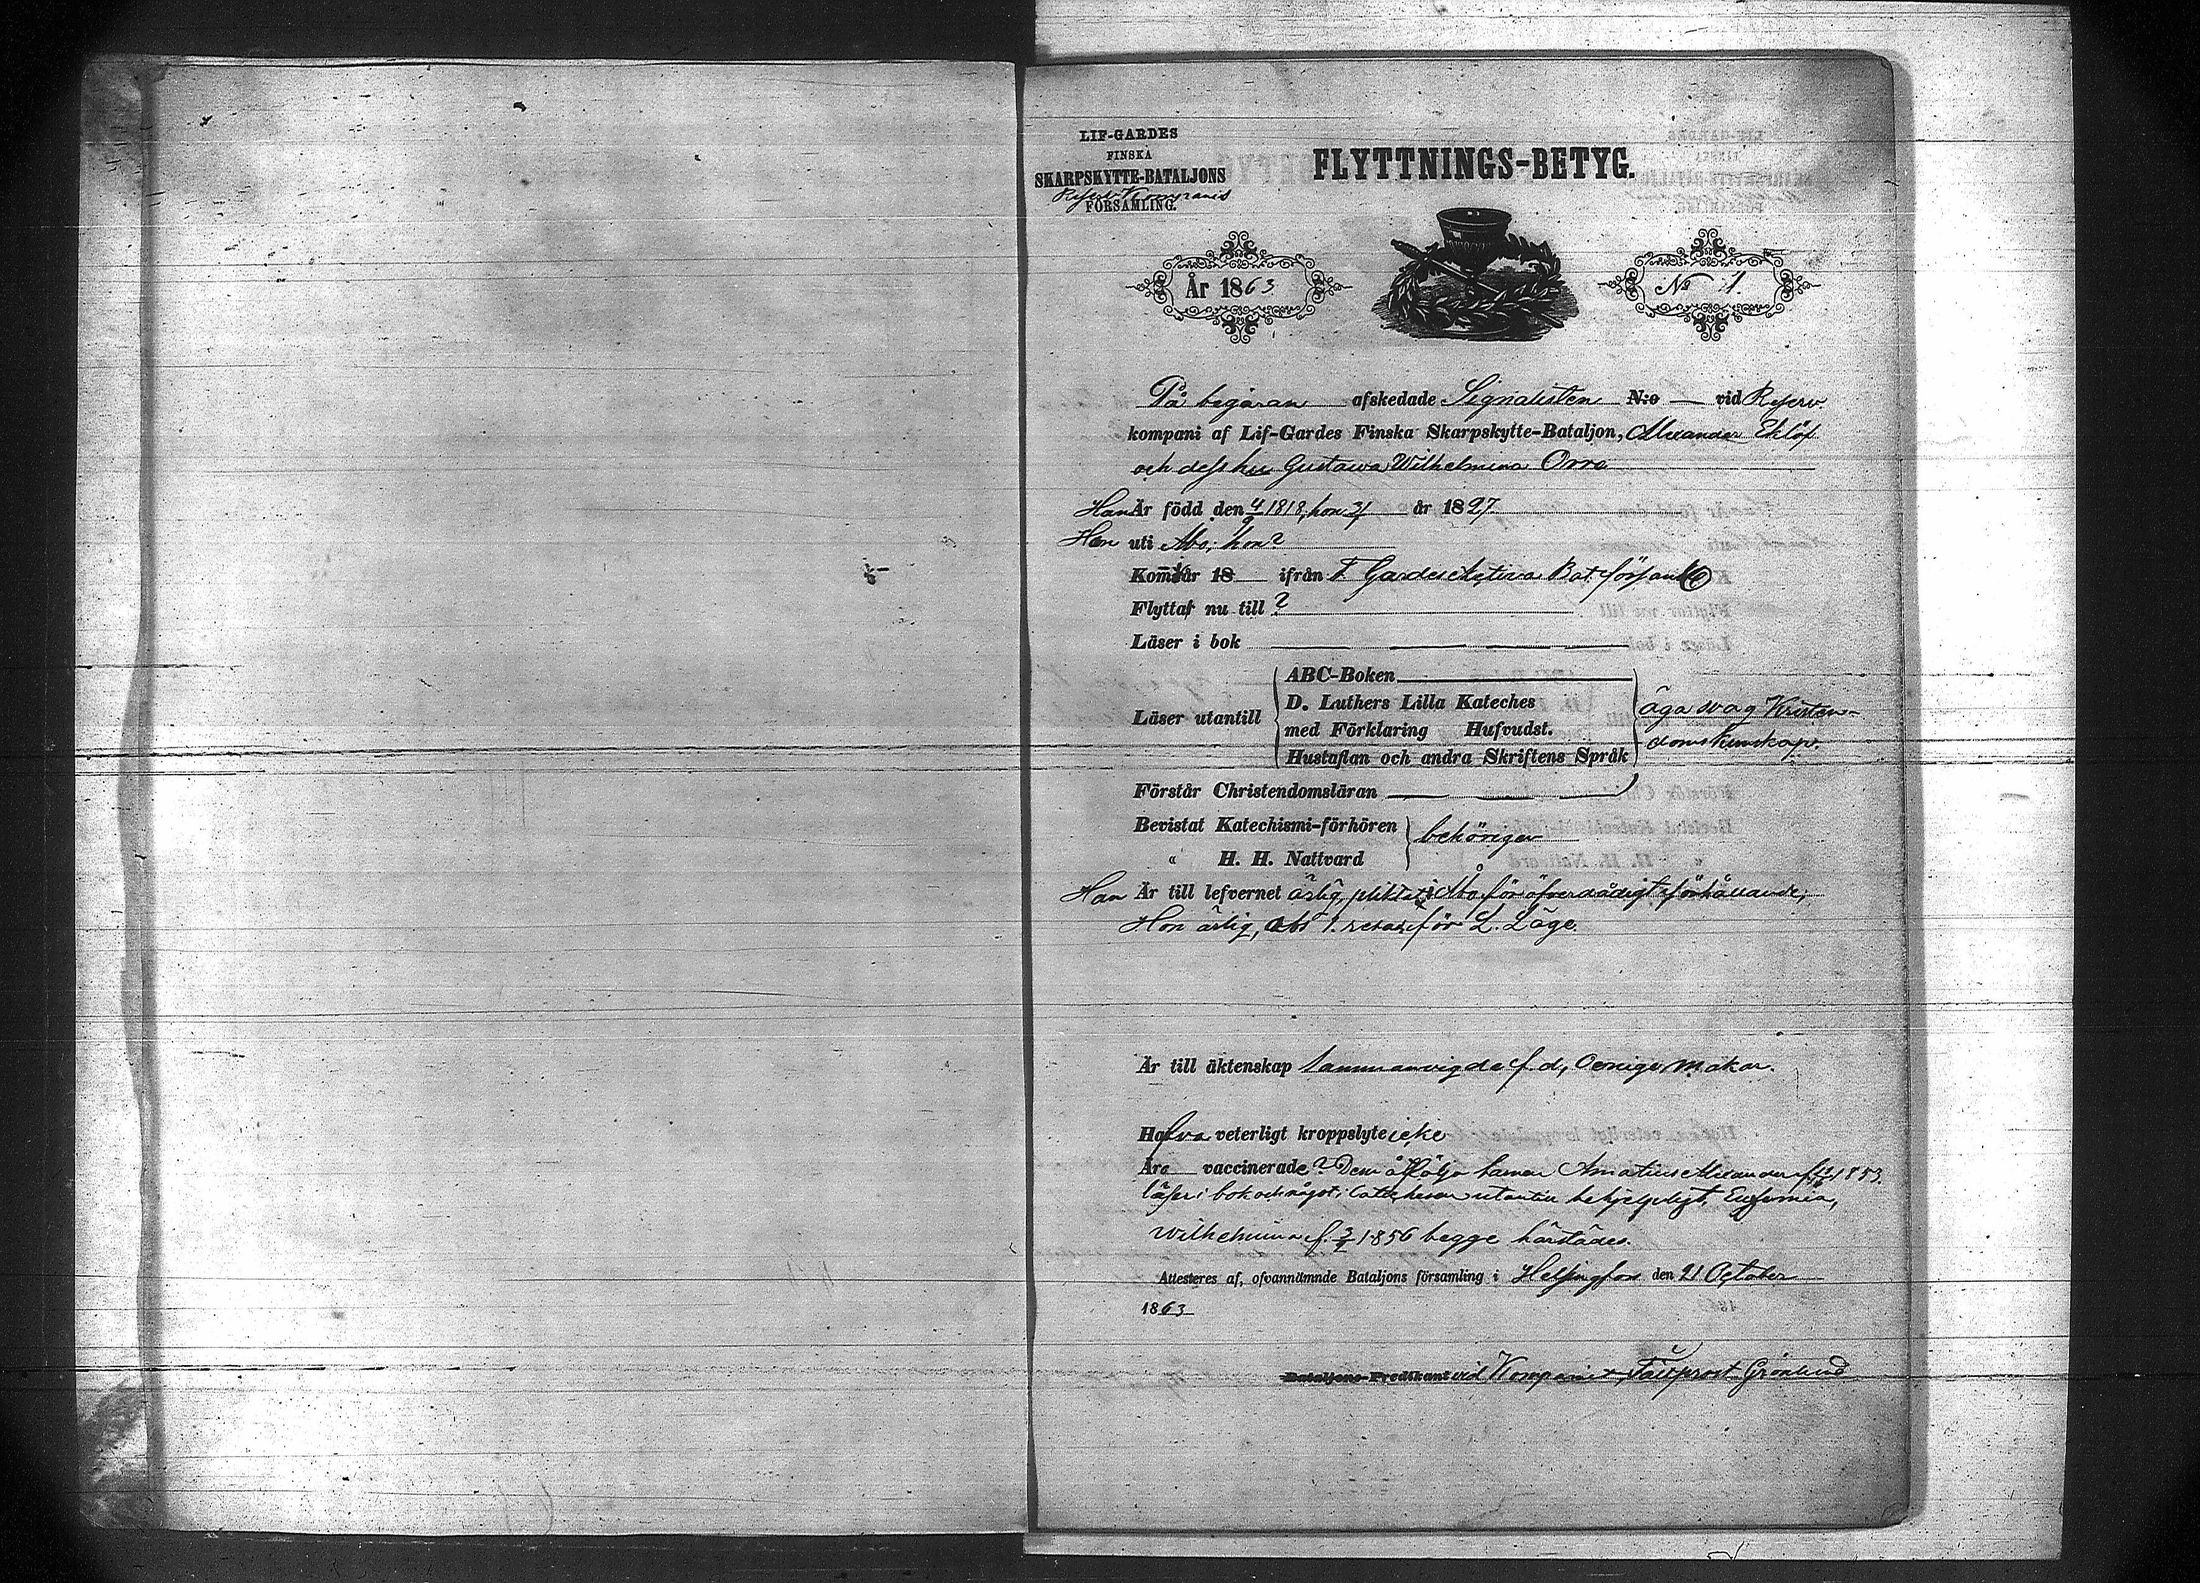 LIF-GARDES
FINSKA
SKARPSKYTTE-BATALJONS
Reserv Kompanis
FÖRSAMLING.
FLYTTNINGS-BETYG.
År 1863
No 1.
På begäran afskedade Signalisten N:o — vid Reserv
kompani af Lif-Gardes Finska Skarpskytte-Bataljon, Alexander Eklöf
och dess hu Gustawa Wilhelmina Orre
Han Är född den 4/9 1818, hon år 1827
Han uti Åbo; hon?
Kom år 18 ifrån F. Gardes Activa Bat. förs.
Flyttar nu till ?
Läser i bok
Läser utantill
ABC-Boken
D. Luthers Lilla Kateches
med Förklaring Hufvudst.
Hustaflan och andra Skriftens Språk
äga svag Kristen-
domskunskap.
Förstår Christendomsläran
Bevistat Katechismi-förhören
" H. H. Nattvard
behörigen
Han Är till lefvernet ärlig, pliktat i Åbo för öfverdådigt förhållande;
Hon ärlig, abs 1. resa för L. Läge.
Är till äktenskap Sammanvigde f. d, Oenige Makar.
Hafva veterligt kroppslyte icke
Äro vaccinerade? Dem åtfölja barnen Amatius Alexander f. 1853.
läser i bok och något i Cathechesen utantill behjelpligt, Eufemia,
Wilhelmina f. 1856 begge härstädes.
Attesteres af, ofvannämnde Bataljons församling i Helsingfors den 21 October
1863
Bataljons-Predikant vid Kompaniet, Fältprost Grönlund